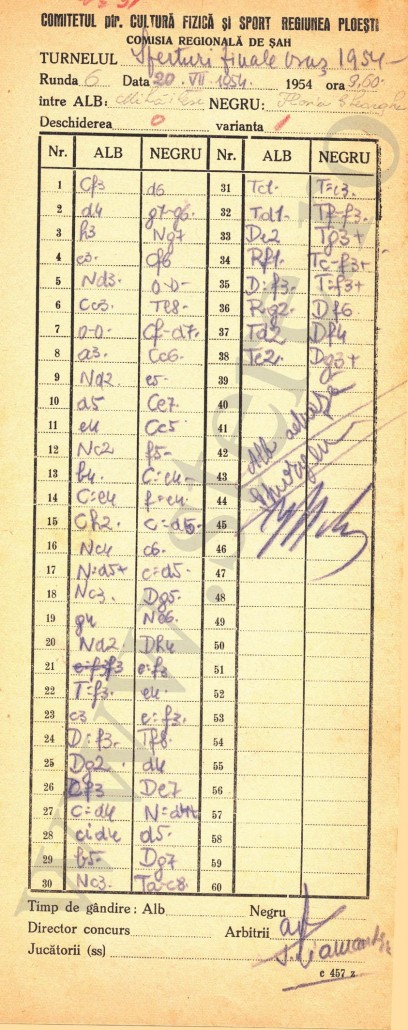 COMITETUL ptr. CULTURĂ FIZICĂ ȘI SPORT REGIUNEA PLOEȘTI
COMISIA REGIONALĂ DE ȘAH
TURNELUL Sferturi finale 1954
Runda 6 Data 20 VII 1954 1954 ora
între ALB: NEGRU: Florin Gheorghe
Deschiderea 0 varianta 1
Nr. ALB NEGRU Nr. ALB NEGRU
1 Cf3 d6 31 Tc1 T=c3.
2 d4 g7-g6. 32 Td1 Tf-f3.
3 h3 Ng7 33 De2 Tg3+
4 e3. Cf6 34 Rf1. Tc-f3+
5 Nd3. 0-0- 35 D:f3. T:f3+
6 Cc3. Te8- 36 Rg2. Df6
7 0-0- Cf-d7. 37 Td2 Df4
8 a3. Cc6. 38 Te2. Dg3+
9 Nd2. e5- 39
10 d5 Ce7 40
11 e4 Cc5 41
12 Nc2 f5- 42
13 b4. C:e4. 43
14 C:e4 f:e4. 44
15 Ch2. C:d5- 45
16 Nc4 c6. 46
17 N:d5+ c:d5. 47
18 Nc3. Dg5. 48
19 g4 Ne6. 49
20 Nd2 Dh4 50
21 f3 e:f3 51
22 T:f3. e4. 52
23 c3 e:f3. 53
24 D:f3. Tf8. 54
25 Dg2 d4 55
26 Cf3 De7 56
27 C:d4 N:d4+ 57
28 c:d4 d5- 58
29 b5- Dg7 59
30 Nc3. Ta-c8. 60
Alb
Timp de gândire: Alb Negru
Director concurs Arbitrii
Jucătorii (ss)
c 457 z
www.stere.ro